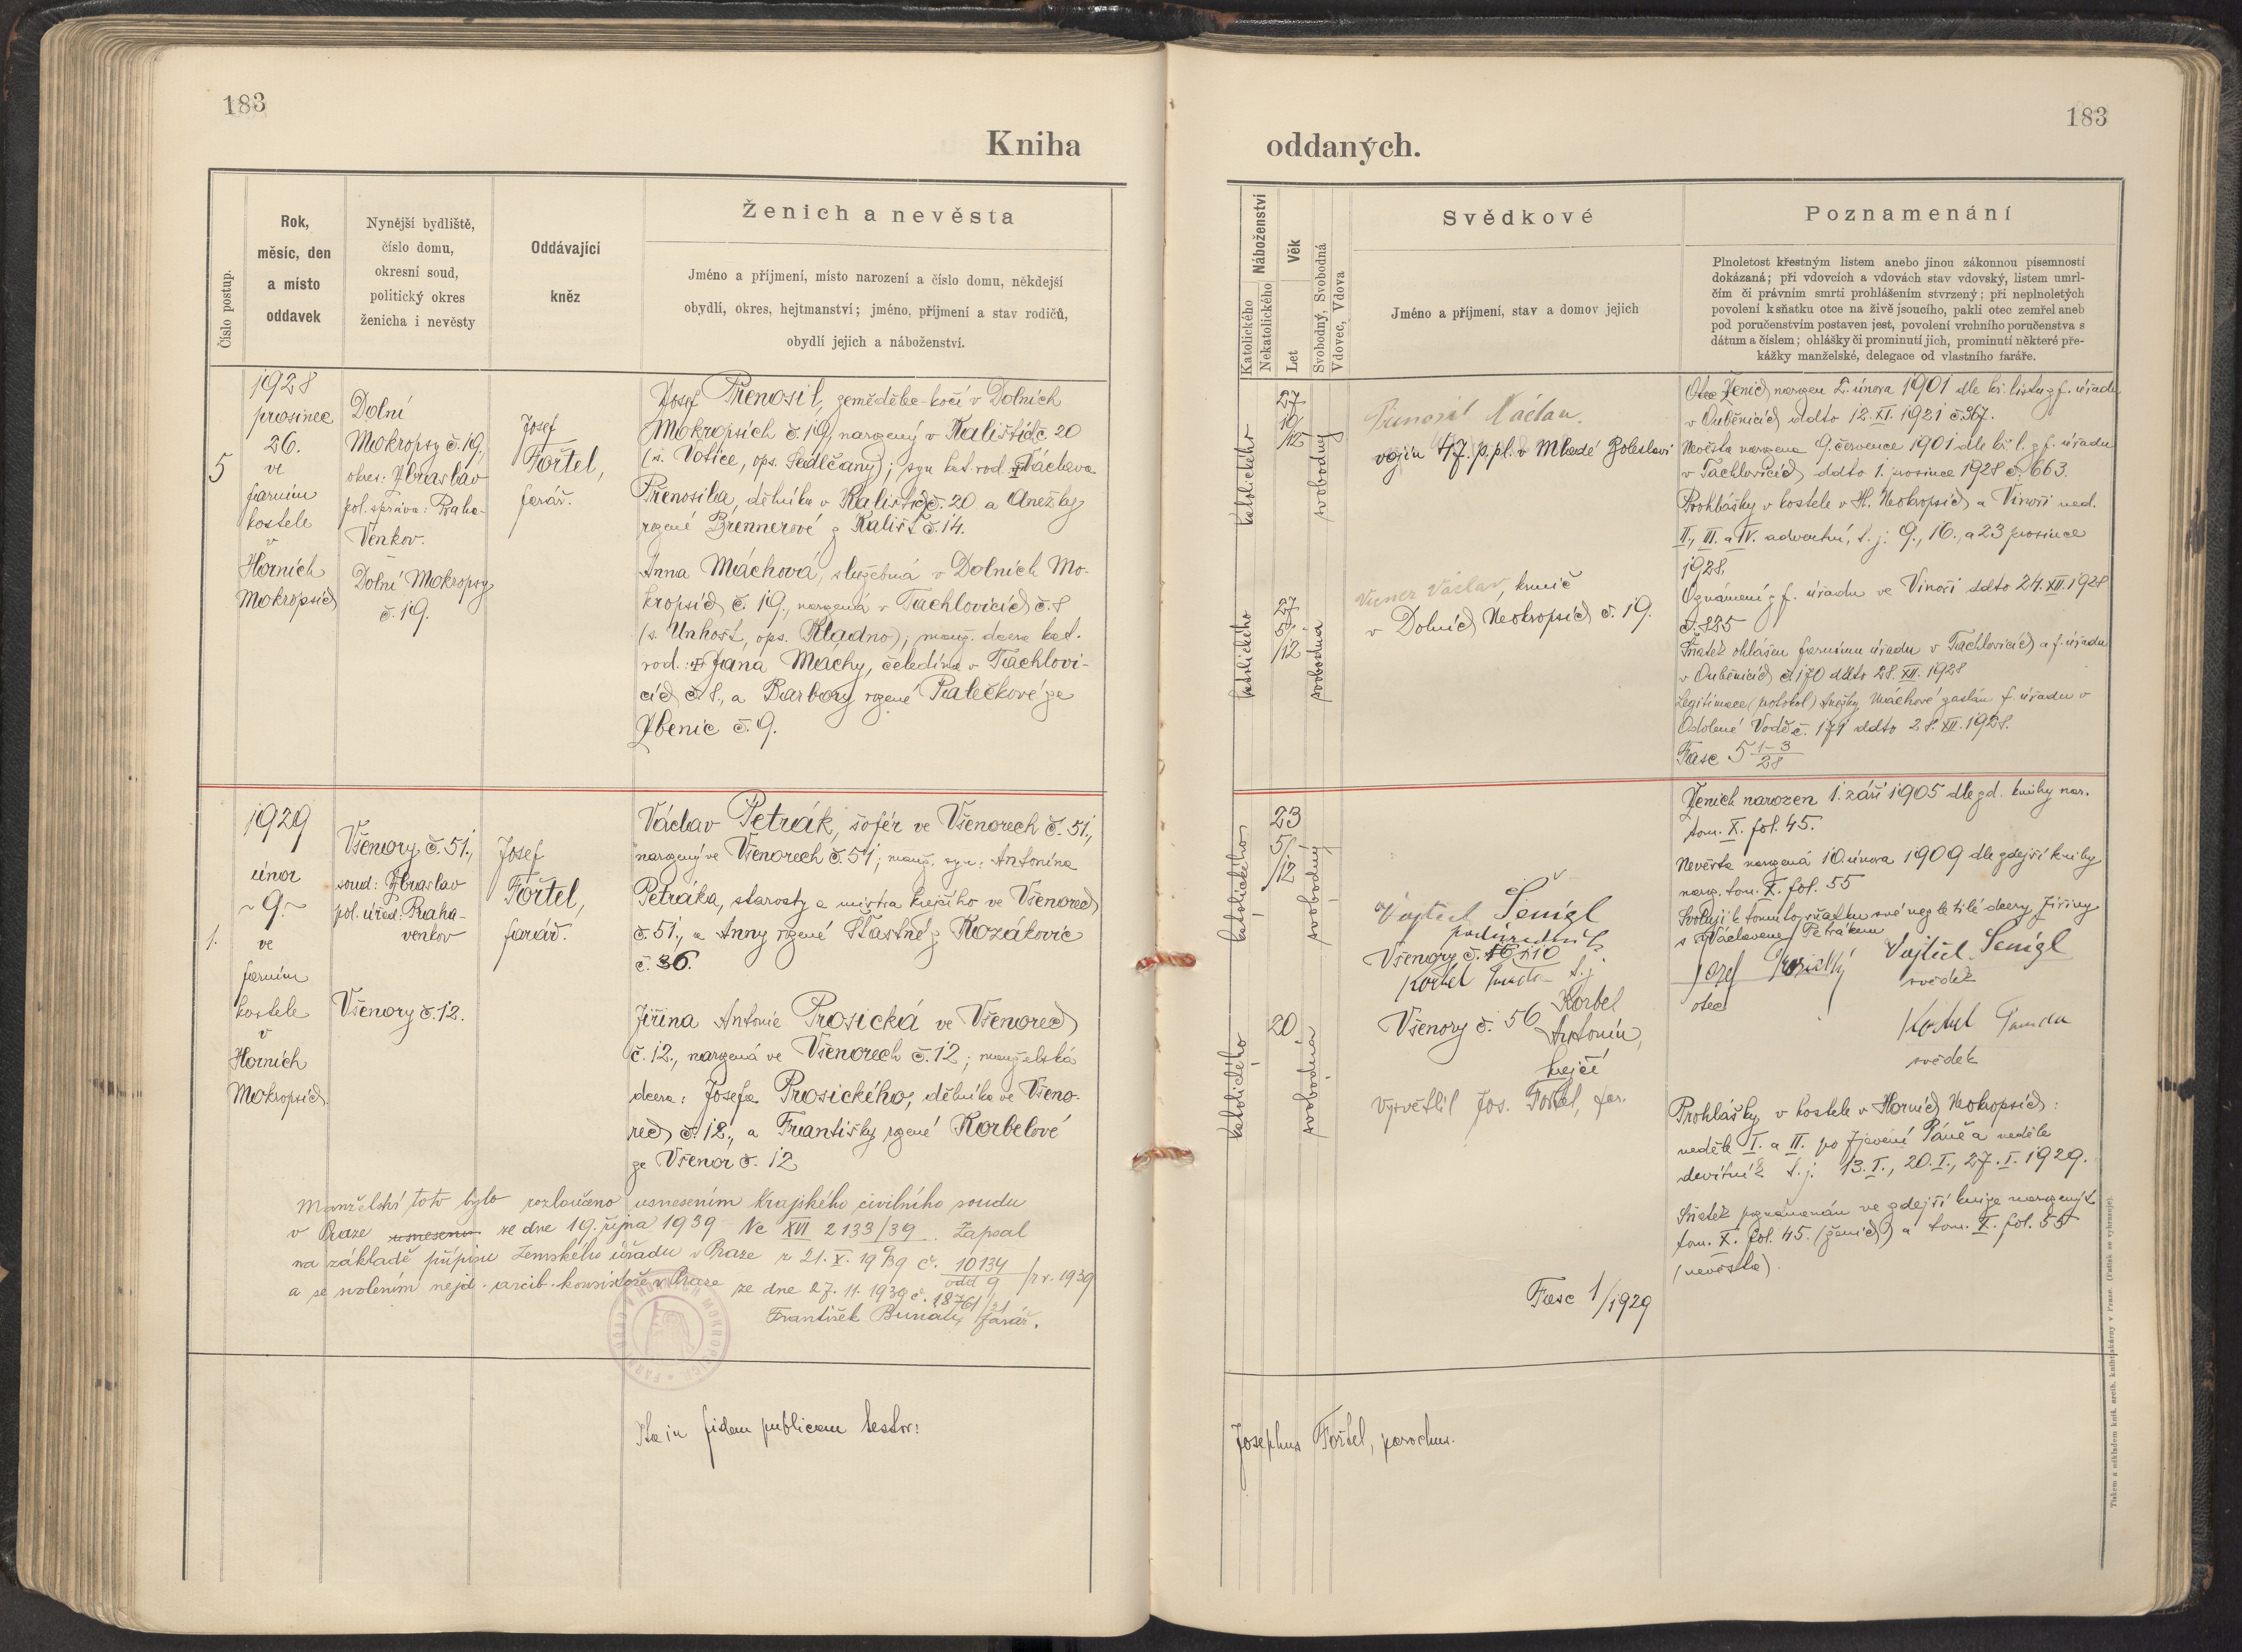 183
Kniha
Číslo postup.
Rok,
měsíc, den
a místo
oddavek
Nynější bydliště,
číslo domu,
okresní soud,
politický okres
ženicha i nevěsty
Oddávající
kněz
Ženich a nevěsta
Jméno a příjmení, místo narození a číslo domu, někdejší
obydlí, okres, hejtmanství; jméno, příjmení a stav rodičů,
obydlí jejich a náboženství.
5
1928
prosinec
26.
ve
farním
kostele
v
Horních
Mokropsích
Dolní
Mokropsy č. 19.
okres: Zbraslav
pol. správa: Praha-
Venkov.
Dolní Mokropsy
č. 19.
Josef
Fořtel,
farář.
Josef Přenosil, zemědělec-kočí v Dolních
Mokropsích č. 19, narozený v Kalištích č. 20
(s. Votice, ops. Sedlčany); syn kat. rod. Václava
Přenosila, dělníka v Kalištích č. 20 a Anežky
rozené Brennerové z Kališť č. 14.
Anna Máchová, služebná v Dolních Mo-
kropsích č. 19., narozená v Tachlovicích č. 8
(s. Unhošť, ops. Kladno); manž. dcera kat.
rod.: Jana Máchy, čeledína v Tachlovi-
cích č. 8., a Barbory rozené Palečkové ze
Zbenic č. 9.
1.
1929
únor
~ 9. ~
ve
farním
kostele
v
Horních
Mokropsích
Všenory č. 51.,
soud: Zbraslav
pol. úřad: Praha-
venkov
Všenory č. 12.
Josef
Fořtel,
farář.
Václav Petrák, šofér ve Všenorech č. 51.,
narozený ve Všenorech č. 51; manž. syn: Antonína
Petráka, starosty a mistra krejčího ve Všenorech
č. 51., a Anny rozené Šťastné z Kozákovic
č. 36.
Jiřina Antonie Prosická ve Všenorech
č. 12., narozená ve Všenorech č. 12; manželská
dcera: Josefa Prosického, dělníka ve Všeno-
rech č. 12., a Františky rozené Korbelové
ze Všenor č. 12
Manželství toto bylo rozloučeno usnesením Krajského civilního soudu
v Praze usnesením ze dne 19. října 1939 Nc XVI 2133/39. Zapsal
na základě přípisu Zemského úřadu v Praze z 21. X. 1939 č. 10134/odd 9 /r. 1939
a se svolením nejd. arcib. konsistoře v Praze ze dne 27. 11. 1939 č. 18761/21
František farář.
Ita in fidem publicam testor:
183
oddaných.
Náboženství
Katolického
Nekatolického
Věk
Let
Svobodný, Svobodná
Vdovec, Vdova
Svědkové
Jméno a příjmení, stav a domov jejich
Poznamenání
Plnoletost křestným listem anebo jinou zákonnou písemností
dokázaná; při vdovcích a vdovách stav vdovský, listem umrl-
čím či právním smrti prohlášením stvrzený; při neplnoletých
povolení k sňatku otce na živě jsoucího, pakli otec zemřel aneb
pod poručenstvím postaven jest, povolení vrchního poručenstva s
dátum a číslem; ohlášky či prominutí jich, prominutí některé pře-
kážky manželské, delegace od vlastního faráře.
katolického
27
10
/12
svobodný
Přenosil Václav.
vojín 47. p. pl. v Mladé Boleslavi
katolického
27
5
/12
svobodná
Václav, kmnič
v Dolních Mokropsích č. 19.
Ženich narozen 2. února 1901 dle kř. listu z f. úřadu
v Ouběnicích ddto 12. XI. 1921 č. 367.
Nevěsta narozena 9. července 1901 dle kř. l. z f. úřadu
v Tachlovicích, ddto 1. prosince 1928 č. 663.
Prohlášky v kostele v H. Mokropsích a Vinoři ned.
II., III. a IV. adventní, t. j. 9., 16., a 23 prosince
1928.
Oznámení z f. úřadu ve Vinoři ddto 24. XII. 1928
č. 835
Sňatek ohlášen farnímu úřadu v Tachlovicích a f. úřadu
v Ouběnicích č. 170 ddto 28. XII. 1928
Legitimace (protokol) Anežky Máchové zaslán f. úřadu v
Odolené Vodě č. 171 ddto 28. XII. 1928.
Fasc 5 1-3/28
katolického
23
5
/12
svobodný
Vojtěch Šenigl
podúředník
Všenory č. 110
Korbel t. j.
Všenory č. 56 Korbel
Antonín,
krejčí
Vysvětlil Jos. Fořtel, far.
katolického
20
svobodná
Ženich narozen 1. září 1905 dle zd. knihy nar.
tom. X. fol. 45.
Nevěsta narozená 10. února 1909 dle zdejší knihy
naroz. tom. X. fol. 55
Svoluji k tomuto sňatku své nezletilé dcery Jiřiny
s Václavem Petrákem
Josef Prosický
otec
Vojtěch Šenigl
svědek
svědek
Prohlášky v kostele v Horních Mokropsích:
neděle I. a II. po Zjevení Páně a neděle
devítník t. j. 13. I., 20. I., 27. I. 1929.
Sňatek poznamenán ve zdejší knize narozených
tom. X. fol. 45. (ženich) a tom. X. fol. 55
(nevěsta).
Fasc 1/1929
Josephus Fořtel, parochus.